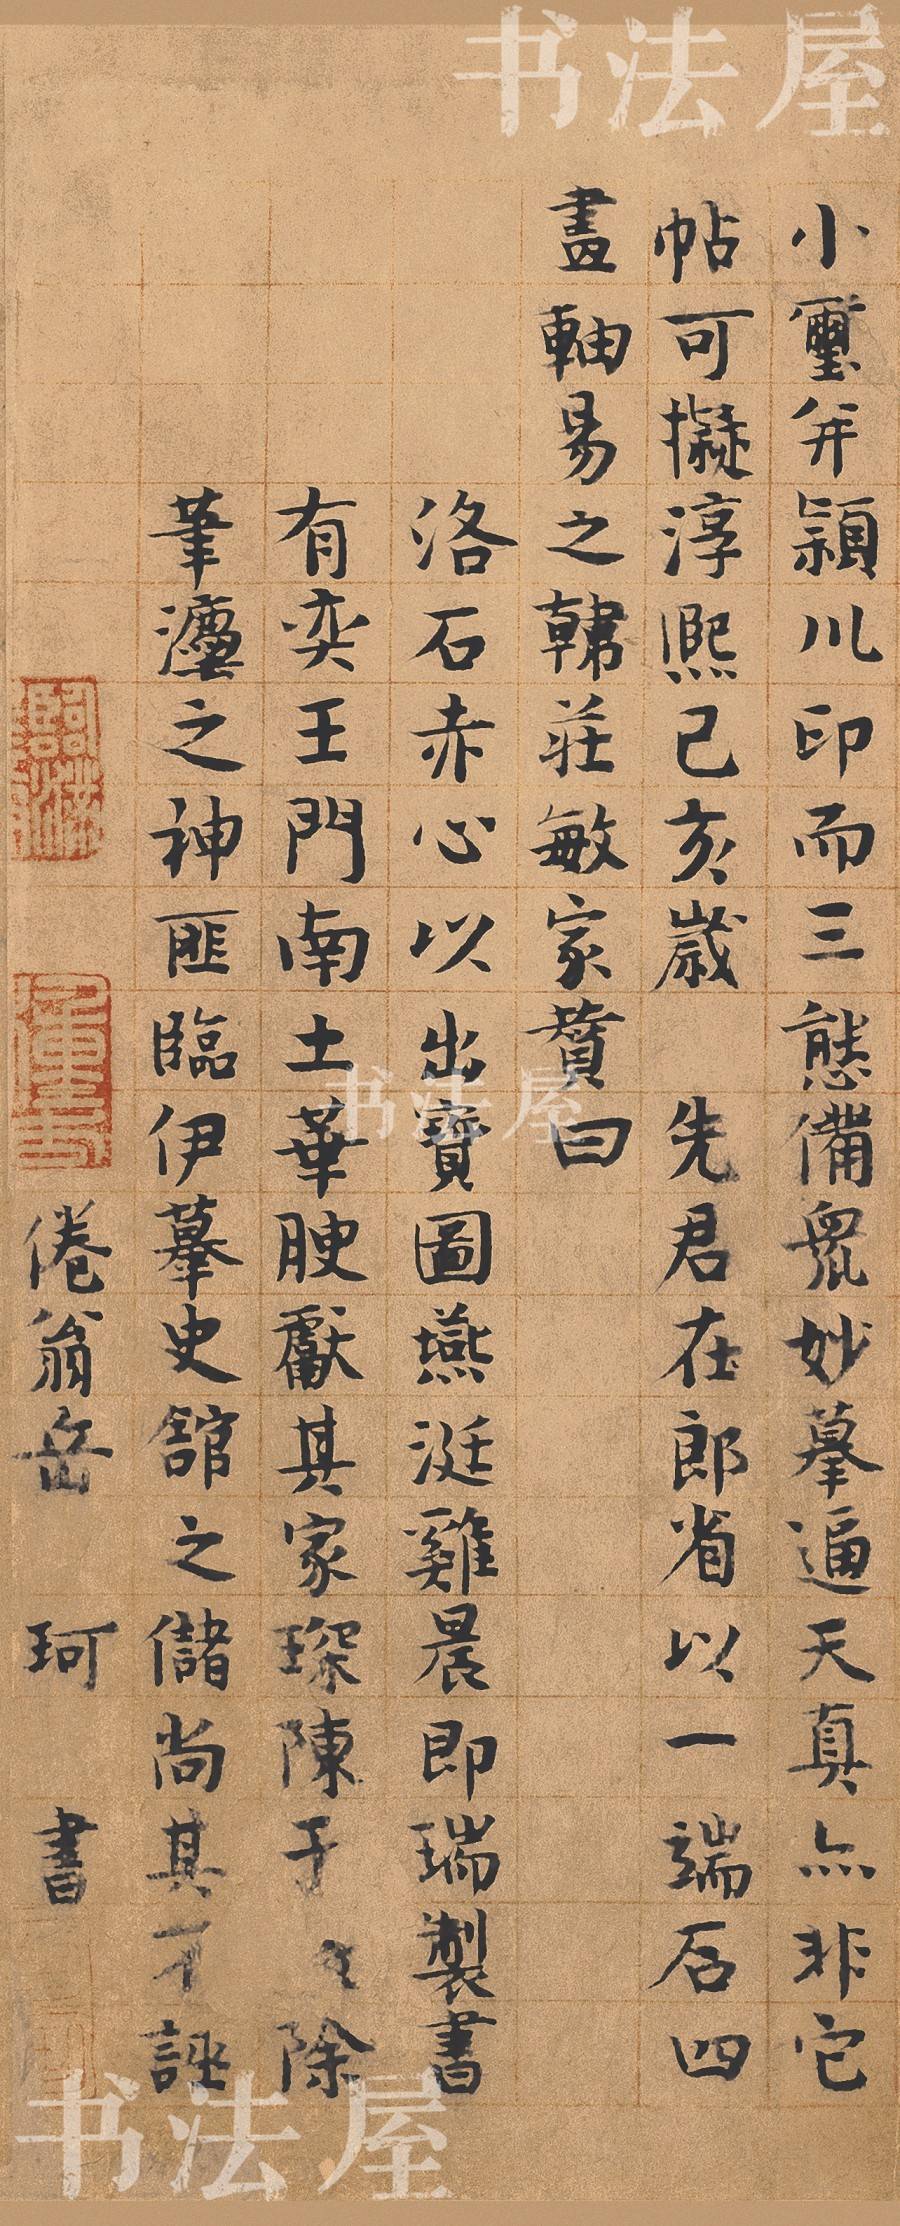 小璽并潁川印而三態備衆妙摹逼天真亦非它
帖可擬淳熙己亥歲 先君在郎省以一端石四
畫軸易之韓莊敏家贊曰
洛石赤心以出寶圖燕涎雞晨即瑞製書
有奕王門南土華腴獻其家琛陳于 除
筆灋之神匪臨伊摹史館之儲尚其不誣
倦翁岳 珂 書
书法屋
书法屋
书法屋